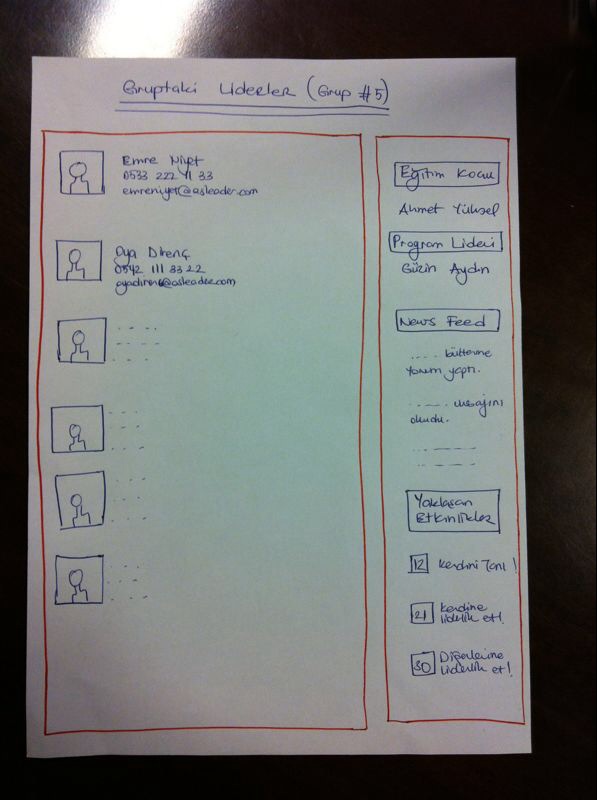 Gruptaki Liderler (Grup #5)
Emre Niyet
0533 222 11 33
emreniyet@asleader.com
Oya Direnç
0542 111 33 22
oyadirenc@asleader.com
Eğitim Kocu
Ahmet Yüksel
Program Lideri
Güzin Aydın
News Feed
bültenine
yorum yaptı.
mesajını
okudu.
Yaklaşan
Etkinlikler
12 Kendini Tanı!
21 Kendine
liderlik et!
30 Diğerlerine
Liderlik et!